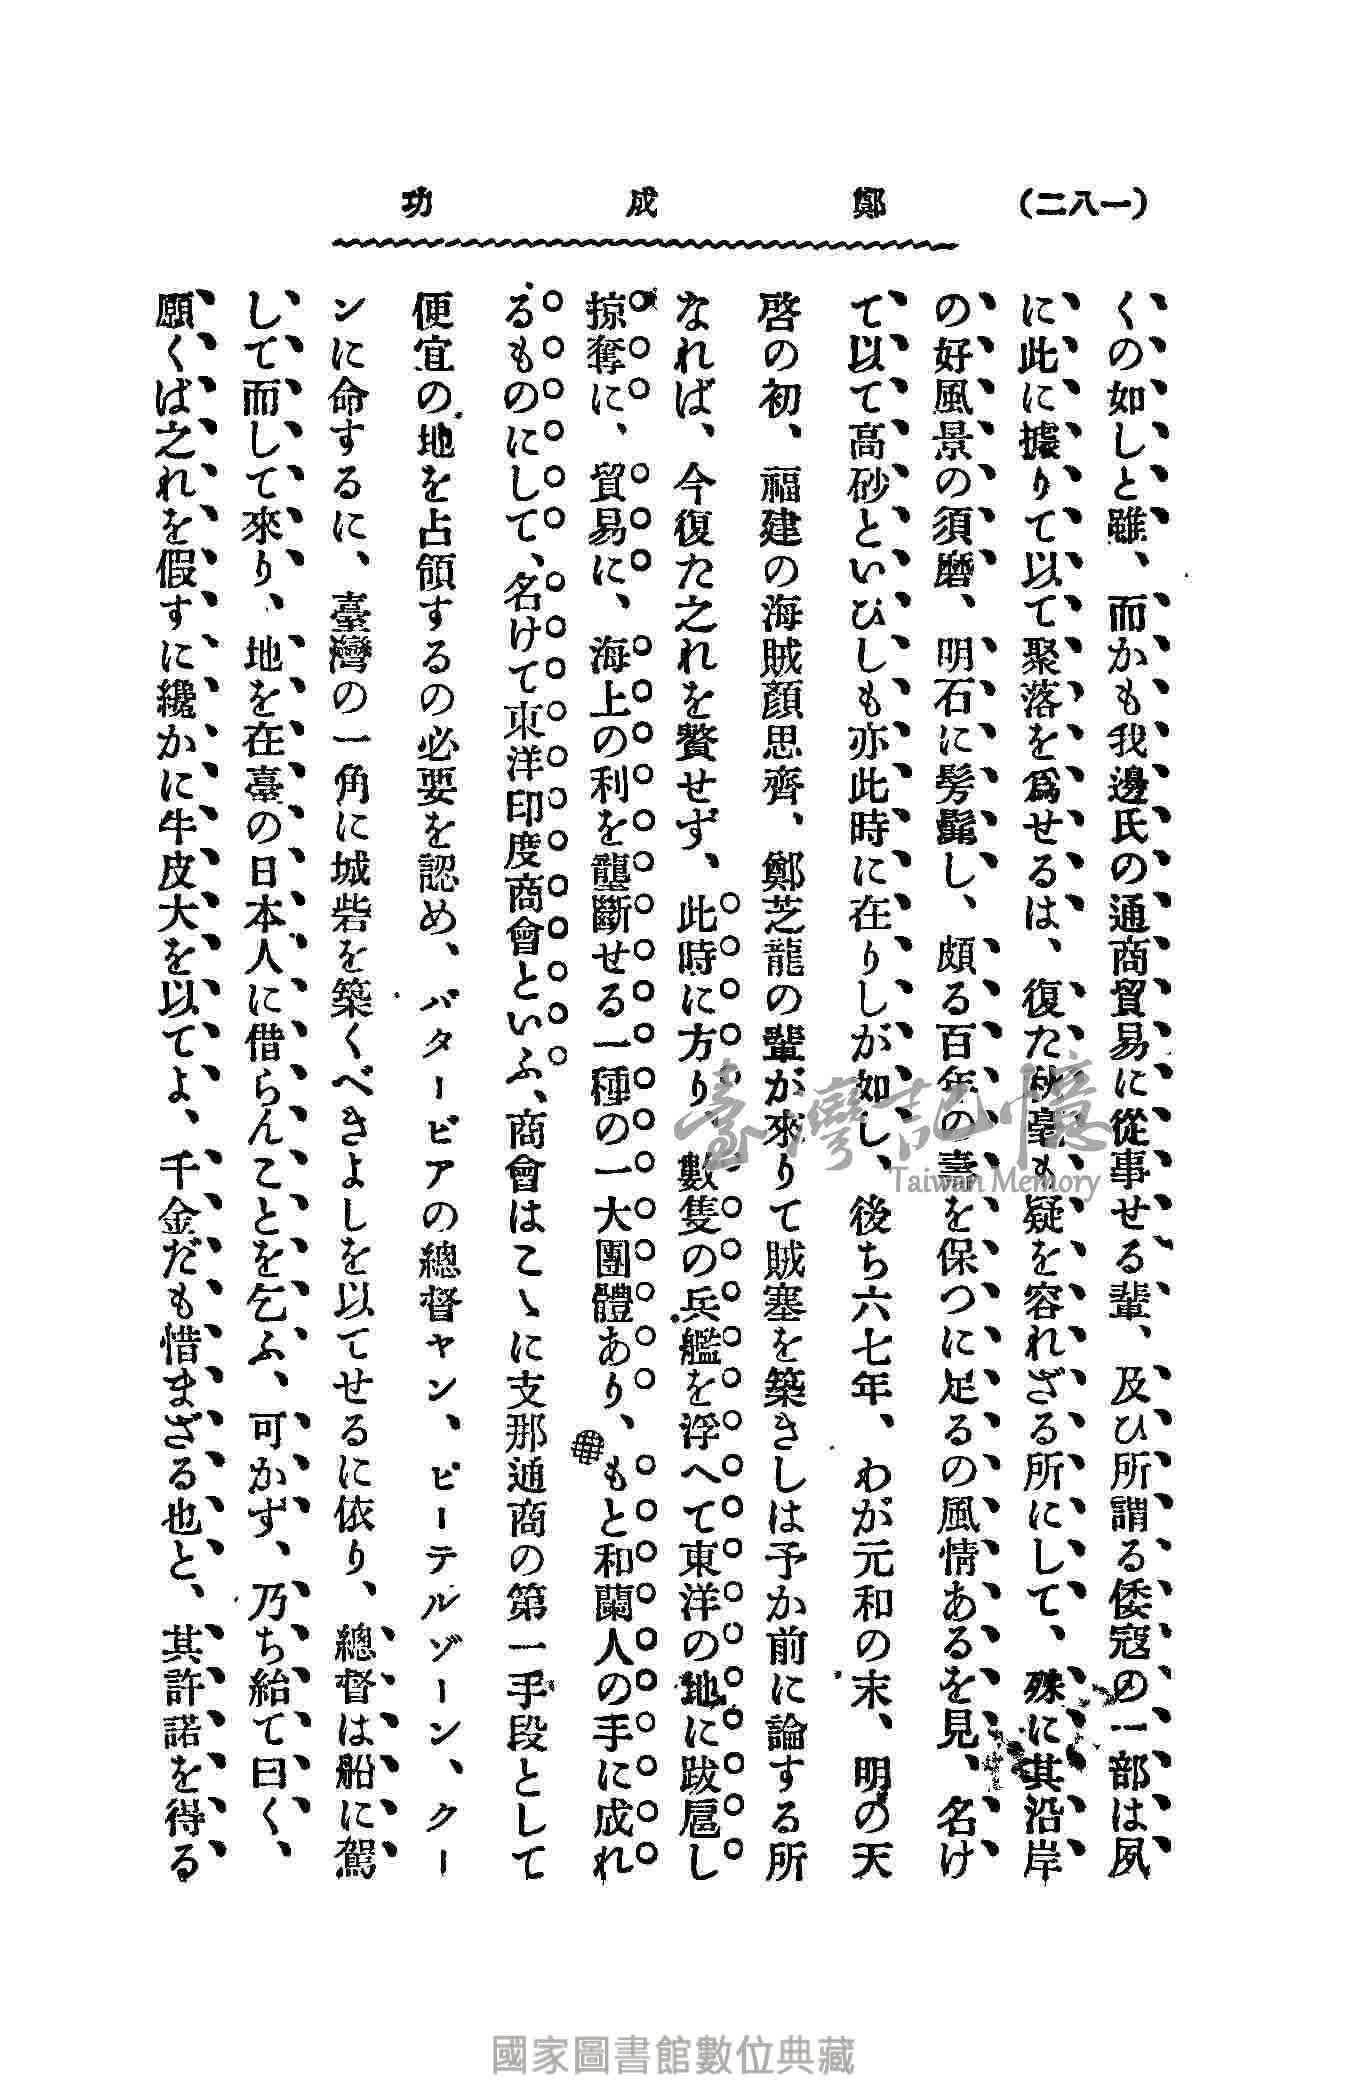 (一八二)
鄭成功
くの如しと雖、而かも我邊氏の通商貿易に從事せる輩、及ひ所謂る倭寇の一部は夙
に此に據りて以て聚落を爲せるは、復た秋毫も疑を容れざる所にして、殊に其沿岸
の好風景の須磨、明石に髣髴し、頗る百年の壽を保つに足るの風情あるを見、名け
て以て高砂といひしも亦此時に在りしが如し、後ち六七年、わが元和の末、明の天
啓の初、福建の海賊顔思齊、鄭芝龍の輩が來りて賊塞を築きしは予か前に論する所
なれば、今復た之れを贅せず、此時に方り、數隻の兵艦を浮へて東洋の地に跋扈し
掠奪に、貿易に、海上の利を壟斷せる一種の一大團體あり、もと和蘭人の手に成れ
るものにして、名けて東洋印度商會といふ、商會はこゝに支那通商の第一手段として
便宜の地を占領するの必要を認め、バタービアの總督ヤン、ピーテルゾーン、クー
ンに命するに、臺灣の一角に城砦を築くべきよしを以てせるに依り、總督は船に駕
して而して來り、地を在臺の日本人に借らんことを乞ふ、可かず、乃ち紿て曰く、
願くば之れを假すに纔かに牛皮大を以てよ、千金だも惜まざる也と、其許諾を得る
臺灣記憶
Taiwan Memory
國家圖書館數位典藏